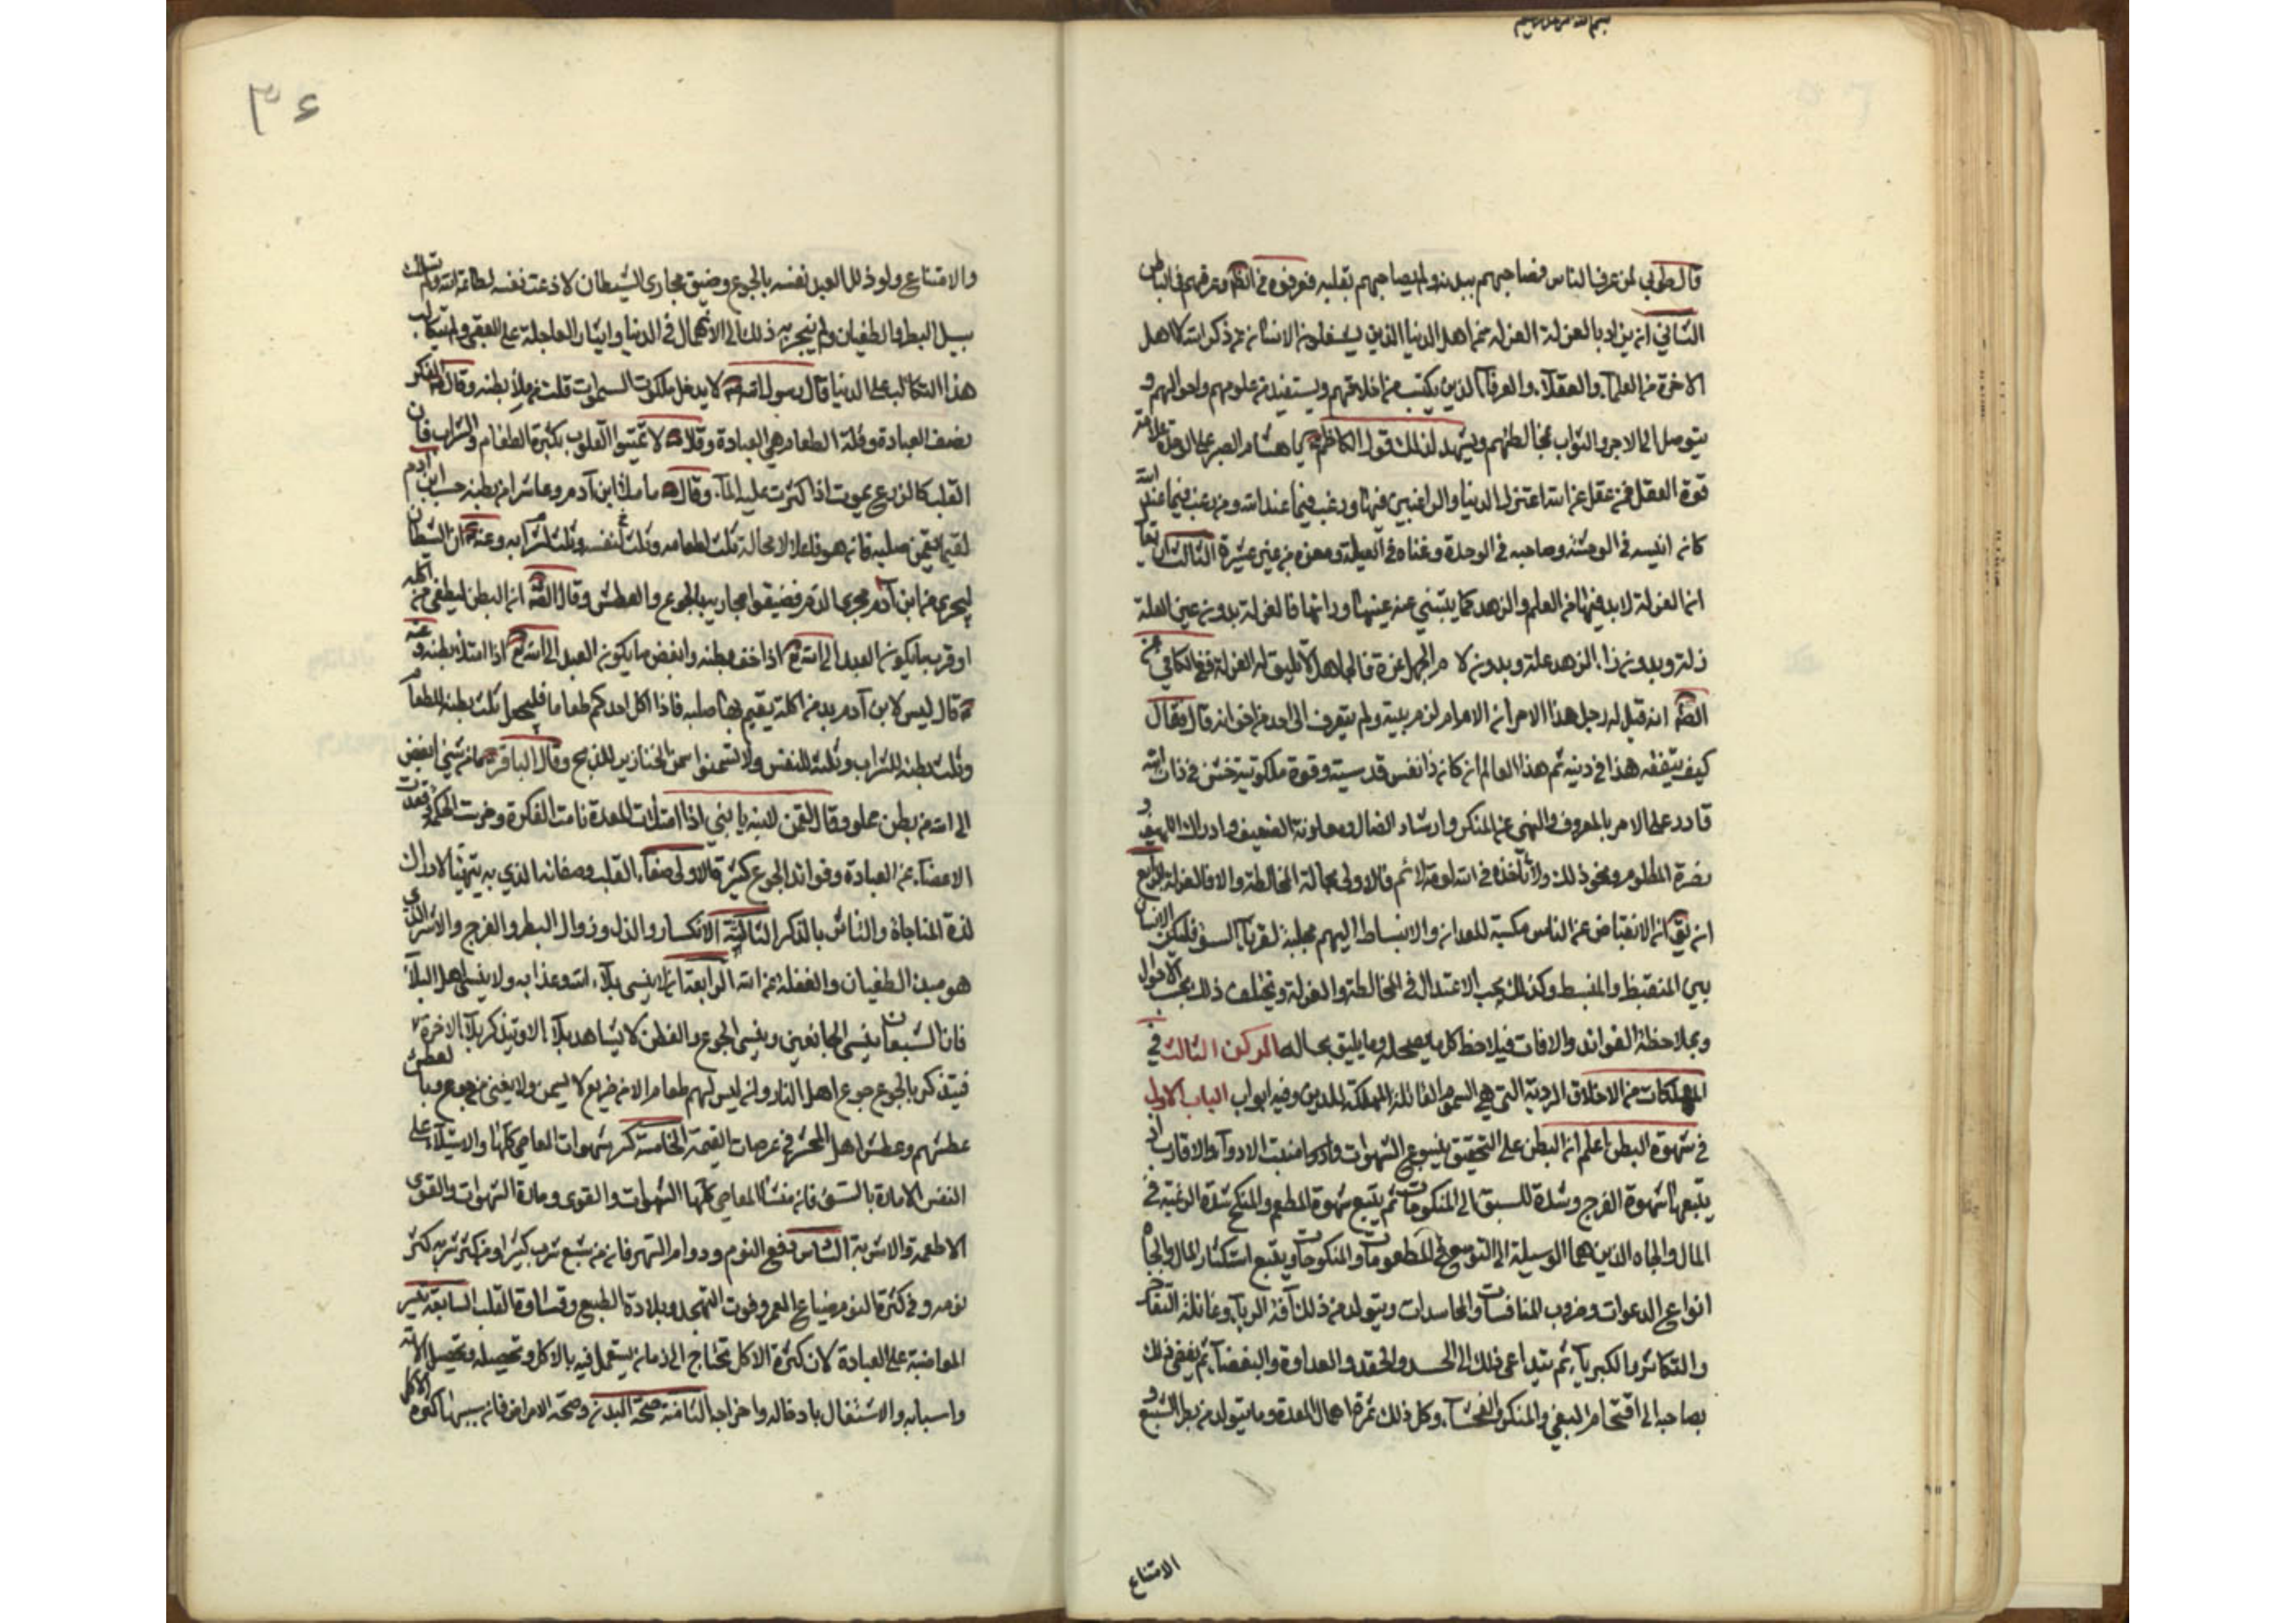 بسم الله الرحمن الرحيم
قال طوبى لمن عرف الناس فصاحبهم ببدنه ولم يصاحبهم بقلبه فعرفوه في الظ وعرفهم في الباطن
الثاني ان يراد بالعزلة العزلة عن اهل الدنيا الذين يشغلون الانسان عن ذكر الله كاهل
الاخرة من العلمآء والعقلآء والعرفآء الذين يكتسب من اخلاقهم ويستفيد من علومهم واحوالهم و
يتوصل الى الاجر والثواب بمخالطتهم ويشهد لذلك قول الكاظم يا هشام الصبر على الوحدة علامة
قوة العقل فمن عقل عن الله اعتزل الدنيا والراغبين فيها ورغب فيما عند الله ومن رغب فيما عند الله
كان انيسه في الوحشة وصاحبه في الوحدة وغناه في العيلة ومعزه من غير عشيرة الثالث ان يقال
انما العزلة لابد فيها من العلم والزهد كما يتبنى عنه عينها وزائها فالعزلة بدون عين العلم
زلة وبدون زاء الزهد علة وبدون لام الجهل عزة فالجاهل لا يليق له العزلة ففي الكافي عن
الصم انه قيل له رجل هذا الامر ان الامام لزم بيته ولم يتعرف الى احد من اخوانه قال فقال
كيف يتفقه هذا في دينه ثم هذا العالم ان كان ذا نفس قدسية وقوة ملكوتية خشن في ذات الله
قادر على الامر بالمعروف والنهي عن المنكر وارشاد الضال ومعاونة الضعيف وادراك اللهيف و
نصرة المظلوم ونحو ذلك ولا تأخذه في الله لومة لائم فالاولى بحاله المخالطة والا فالعزلة الرابع
ان يق ان الانقباض عن الناس مكسبة للعداوة والانبساط اليهم مجلبة لقرنآء السوء فليكن الانسان
بين المنقبض والمنبسط وكذلك يجب الاعتدال في المخالطة والعزلة ويختلف ذلك بحسب الاحوال
وبملاحظة الفوائد والافات فيلاحظ كل ما يصلحه وما يليق بحاله الركن الثالث في
المهلكات من الاخلاق الردية التي هي السموم القاتلة المهلكة للدين وفيه ابواب الباب الاول
في شهوة البطن اعلم ان البطن على التحقيق ينبوع الشهوات ومنبت الادوآء والافات اذ
يتبعها شهوة الفرج وشدة للسبق الى المنكوحات ثم يتبع شهوة المطعم والمنكح شدة الرغبة في
المال والجاه الذين هما الوسيلة الى التوسع في المطعومات والمنكوحات ويتبع استكثار المال والجاه
انواع الدعوات وضروب المنافسات والمحاسدات ويتولد من ذلك آفة الريآء وغائلة التفاخر
والتكاثر والكبريآء ثم يتداعى ذلك الى الحسد والحقد والعداوة والبغضآء ثم يفضي ذلك
بصاحبه الى اقتحام البغي والمنكر والفحشآء وكل ذلك ثمرة اهمال المعدة وما يتولد من بطر الشبع و
الامتناع
٣٤
والامتناع ولو ذلل العبد نفسه بالجوع وضيق مجاري الشيطان لاذعنت نفسه لطاعة الله ولم تسلك
سبيل البطر والطغيان ولم ينجر به ذلك الى الانهماك في الدنيا وايثار العاجلة على العقبى ولم يتكالب
هذا التكالب على الدنيا قال رسول الله لا يدخل ملكوت السموات قلت من ملأ بطنه وقال الفكر
نصف العبادة وقلة الطعام هي العبادة وقال لا تميتوا القلوب بكثرة الطعام والشراب فان
القلب كالزرع يموت اذا كثرت عليه المآء وقال ما ملأ ابن آدم وعاء شرا من بطنه حسب ابن آدم
لقيمات يقمن صلبه فان هو فاعلا لا محالة ثلث لطعامه وثلث لنفسه وثلث لشرابه وعنه ان الشيطان
ليجري من ابن آدم مجرى الدم فضيقوا مجاريه بالجوع والعطش وقال الصم ان البطن ليطغى من اكله
اوقرب ما يكون العبد الى الله اذا خف بطنه وابغض ما يكون العبد الى الله اذا امتلأ بطنه وعنه
قال ليس لابن آدم بد من اكلة يقيم بها صلبه فاذا اكل احدكم طعاما فليجعل ثلث بطنه للطعام
وثلث بطنه للشراب وثلثه للنفس ولا تسمنوا سمن الخنازير للذبح وقال الباقر ما من شيء ابغض
الى الله من بطن مملو وقال لقمن لابنه يا بني اذا امتلئت المعدة نامت الفكرة وخرست الحكمة وقعدت
الاعضآء عن العبادة وفوائد الجوع كثيرة الاولى صفآء القلب وصفائه الذي به يتهيئا لادراك
لذة المناجاة والتأثر بالذكر الثالثة الانكسار والذل وزوال البطر والفرح والاشر الذي
هو مبدء الطغيان والغفلة عن الله الرابعة ان لا ينسى بلآء الله وعذابه ولا ينسى اهل البلآء
فان الشبعان ينسى الجائعين وينسى الجوع والفطن لا يشاهد بلآء الا ويتذكر بلآء الاخرة
فيتذكر بالجوع جوع اهل النار وان ليس لهم طعام الا من ضريع لا يسمن ولا يغني من جوع وبالعطش
عطشهم وعطش اهل المحشر في عرصات القيمة الخامسة كسر شهوات المعاصي كلها والاستيلآء على
النفس الامارة بالسوء فان منشأ المعاصي كلها الشهوات والقوى ومادة الشهوات والقوى
الاطعمة والاشربة السادس دفع النوم ودوام السهر فان من شبع شرب كثيرا ومن كثر شربه كثر
نومه وفي كثرة النوم ضياع العمر وفوت التهجد وبلادة الطبع وقساوة القلب السابعة تيسر
المواظبة على العبادة لان كثرة الاكل تحتاج الى زمان يشتغل فيه بالاكل وتحصيله وتحصيل آلاته
واسبابه والاشتغال بادخاله واخراجه الثامنة صحة البدن وصحة الامراض فان سببها كثرة الاكل